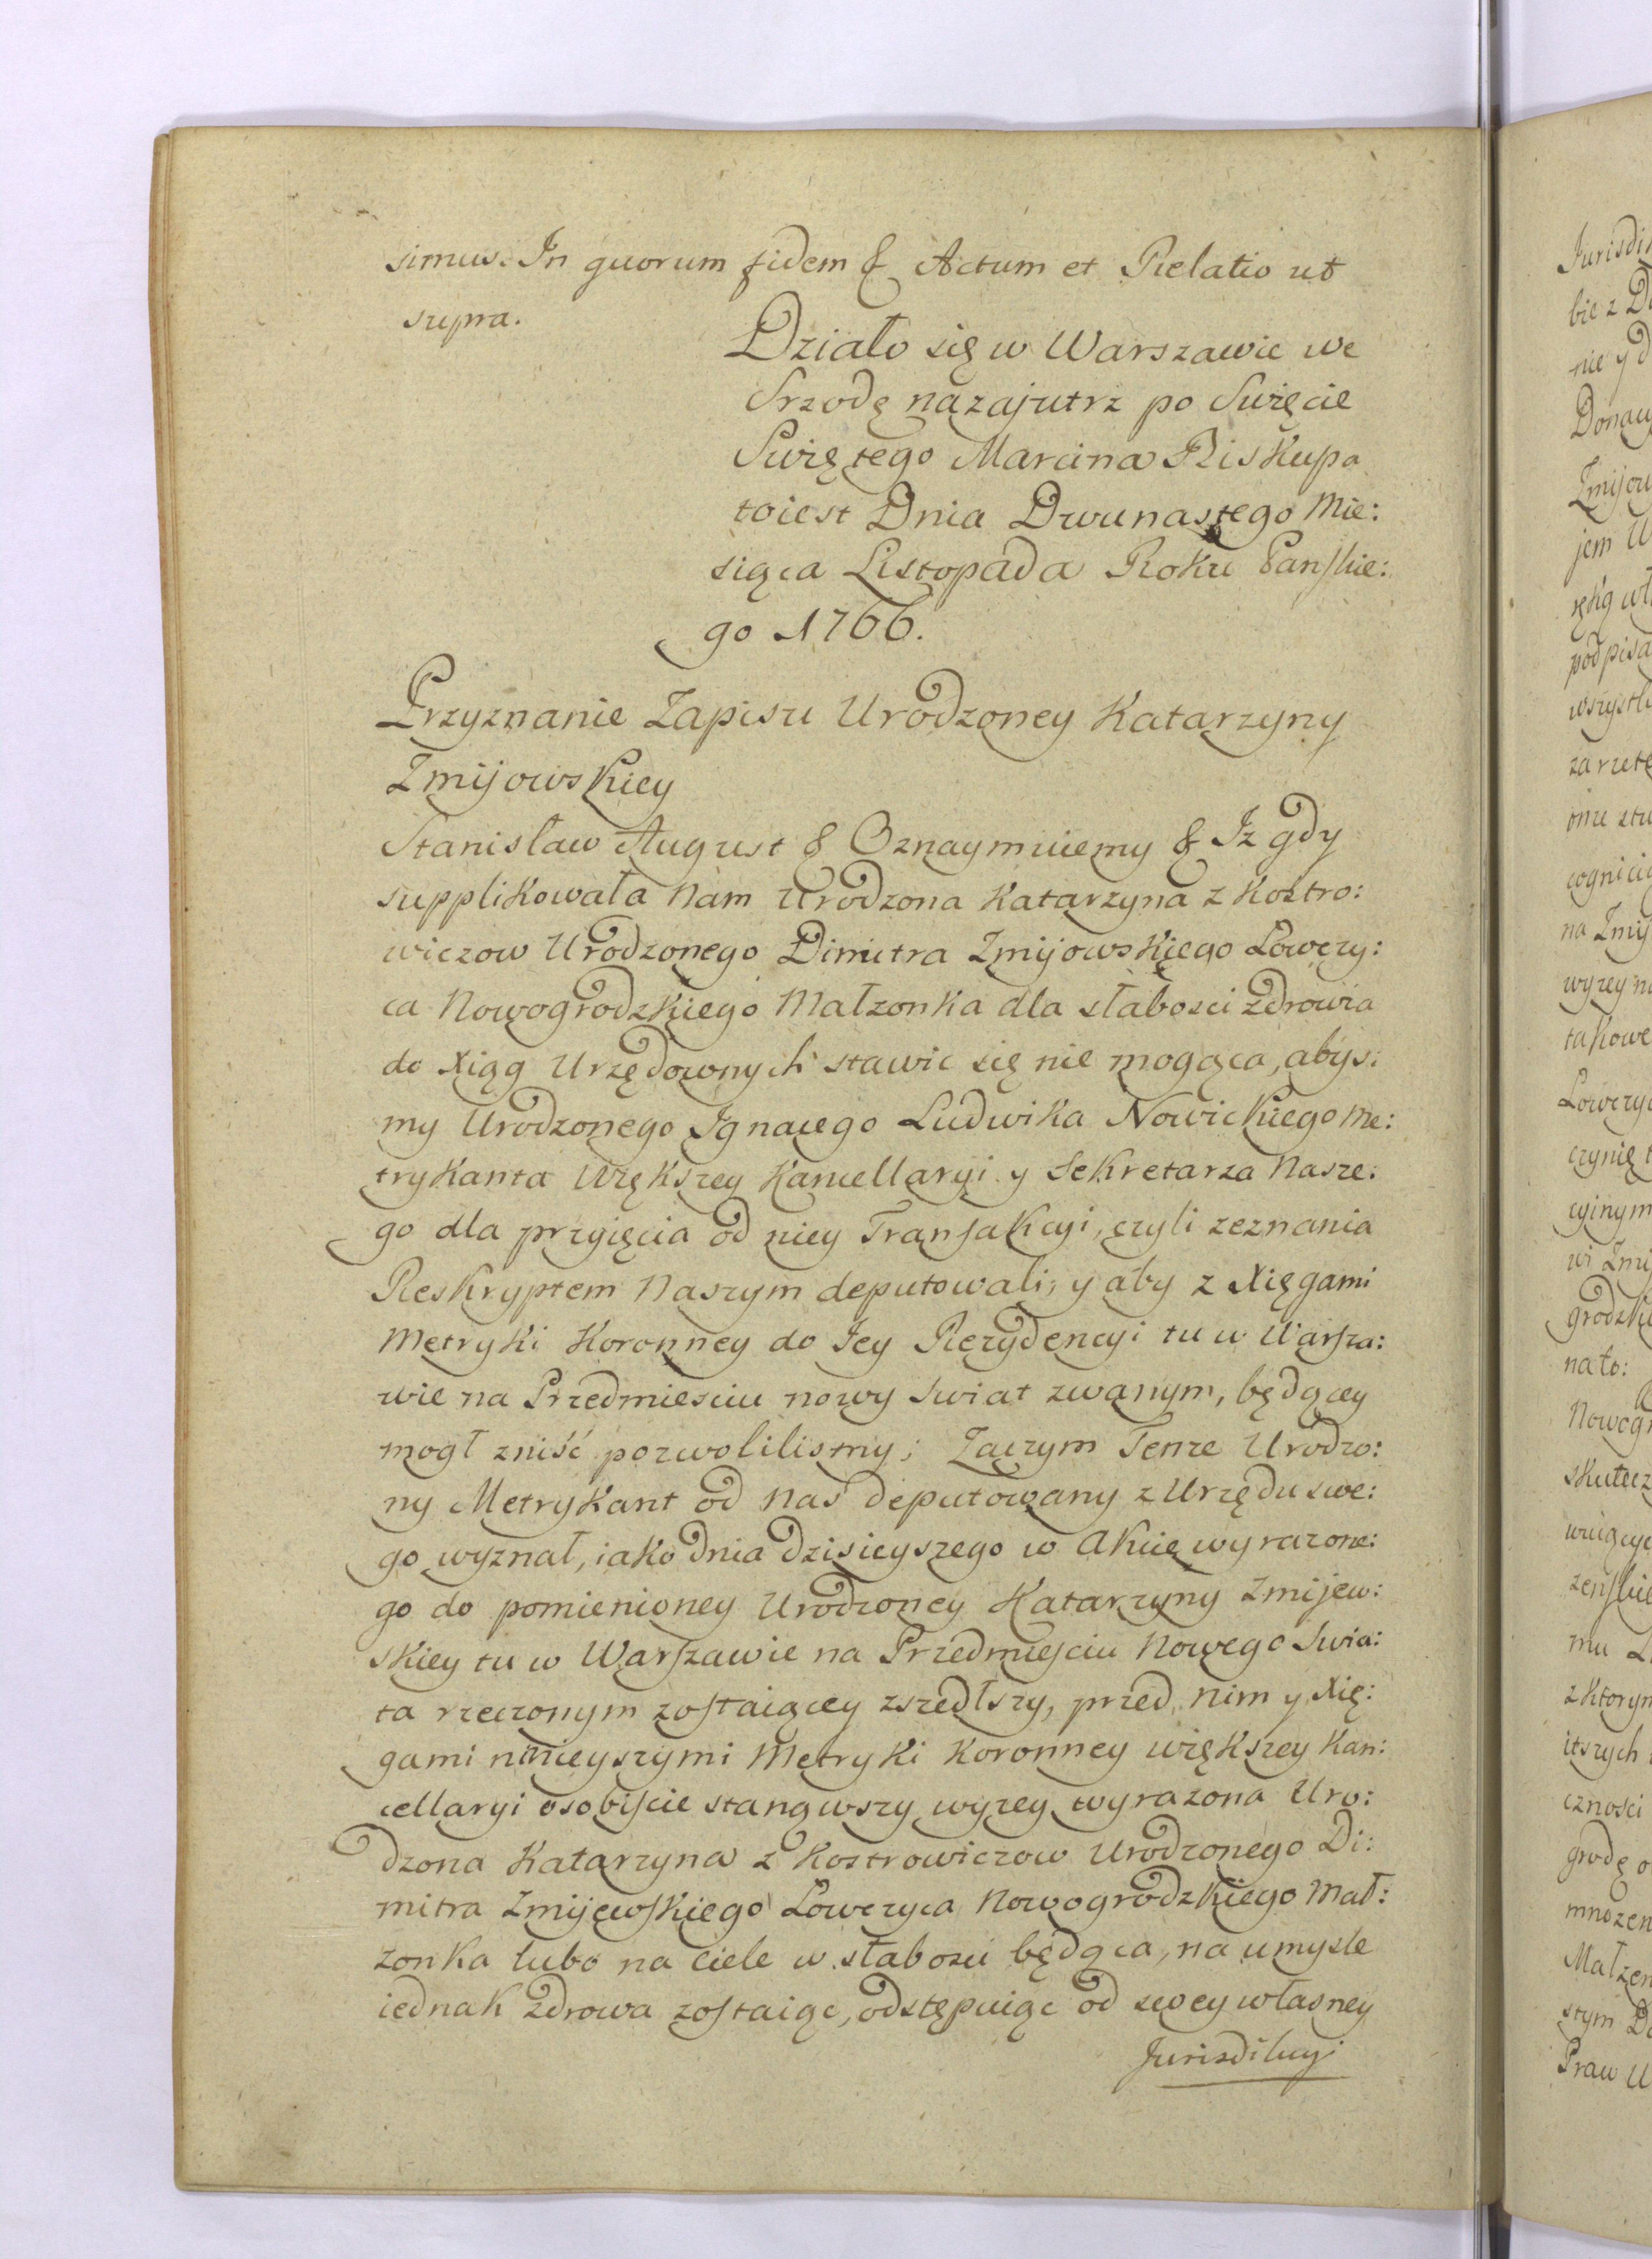 simus. In quorum fidem & Actum et Relatio ut
supra.
Działo się w Warszawie we
Srzodę nazajutrz po Swięcie
Swiętego Marcina Biskupa
toiest Dnia Dwunastego Mie:
siąca Listopada Roku Panskie:
go 1766.
Przyznanie Zapisu Urodzoney Katarzyny
Zmijowskiey
Stanisław August & Oznaymuiemy & Iz gdy
supplikowała Nam Urodzona Katarzyna z Kostro:
wiczow Urodzonego Dimitra Zmijowskiego Łowczy:
ca Nowogrodzkiego Małzonka dla słabosci zdrowia
do Xiąg Urzędownych stawic się nie mogąca, abys:
my Urodzonego Ignacego Ludwika Nowickiego Me:
trykanta Większey Kancellaryi y Sekretarza Nasze:
go dla przyięcia od niey Transakcyi, czyli zeznania
Reskryptem Naszym deputowali, y aby z Xięgami
Metryki Koronney do Jey Rezydencyi tu w Warsza:
wie na Przedmiesciu nowy Swiat zwanym, będącey
mogł zniść pozwolilismy; Zaczym Tenze Urodzo:
ny Metrykant od Nas deputowany z Urzędu swe:
go wyznał, iako dnia dzisieyszego w Akcie wyrazone:
go do pomienioney Urodzoney Katarzyny Zmijew:
skiey tu w Warszawie na Przedmiesciu Nowego Swia:
ta rzeczonym zostaiącey zszedłszy, przed nim y Xię:
gami ninieyszymi Metryki Koronney większey Kan:
cellaryi osobiscie stanąwszy wyzey wyrazona Uro:
dzona Katarzyna z Kostrowiczow Urodzonego Di:
mitra Zmijewskiego Łowczyca Nowogrodzkiego Mał:
zonka lubo na Ciele w słabosci będąca, na umysle
iednak zdrowa zostaiąc, odstępuiąc od swey własney
Jurisdikcyi